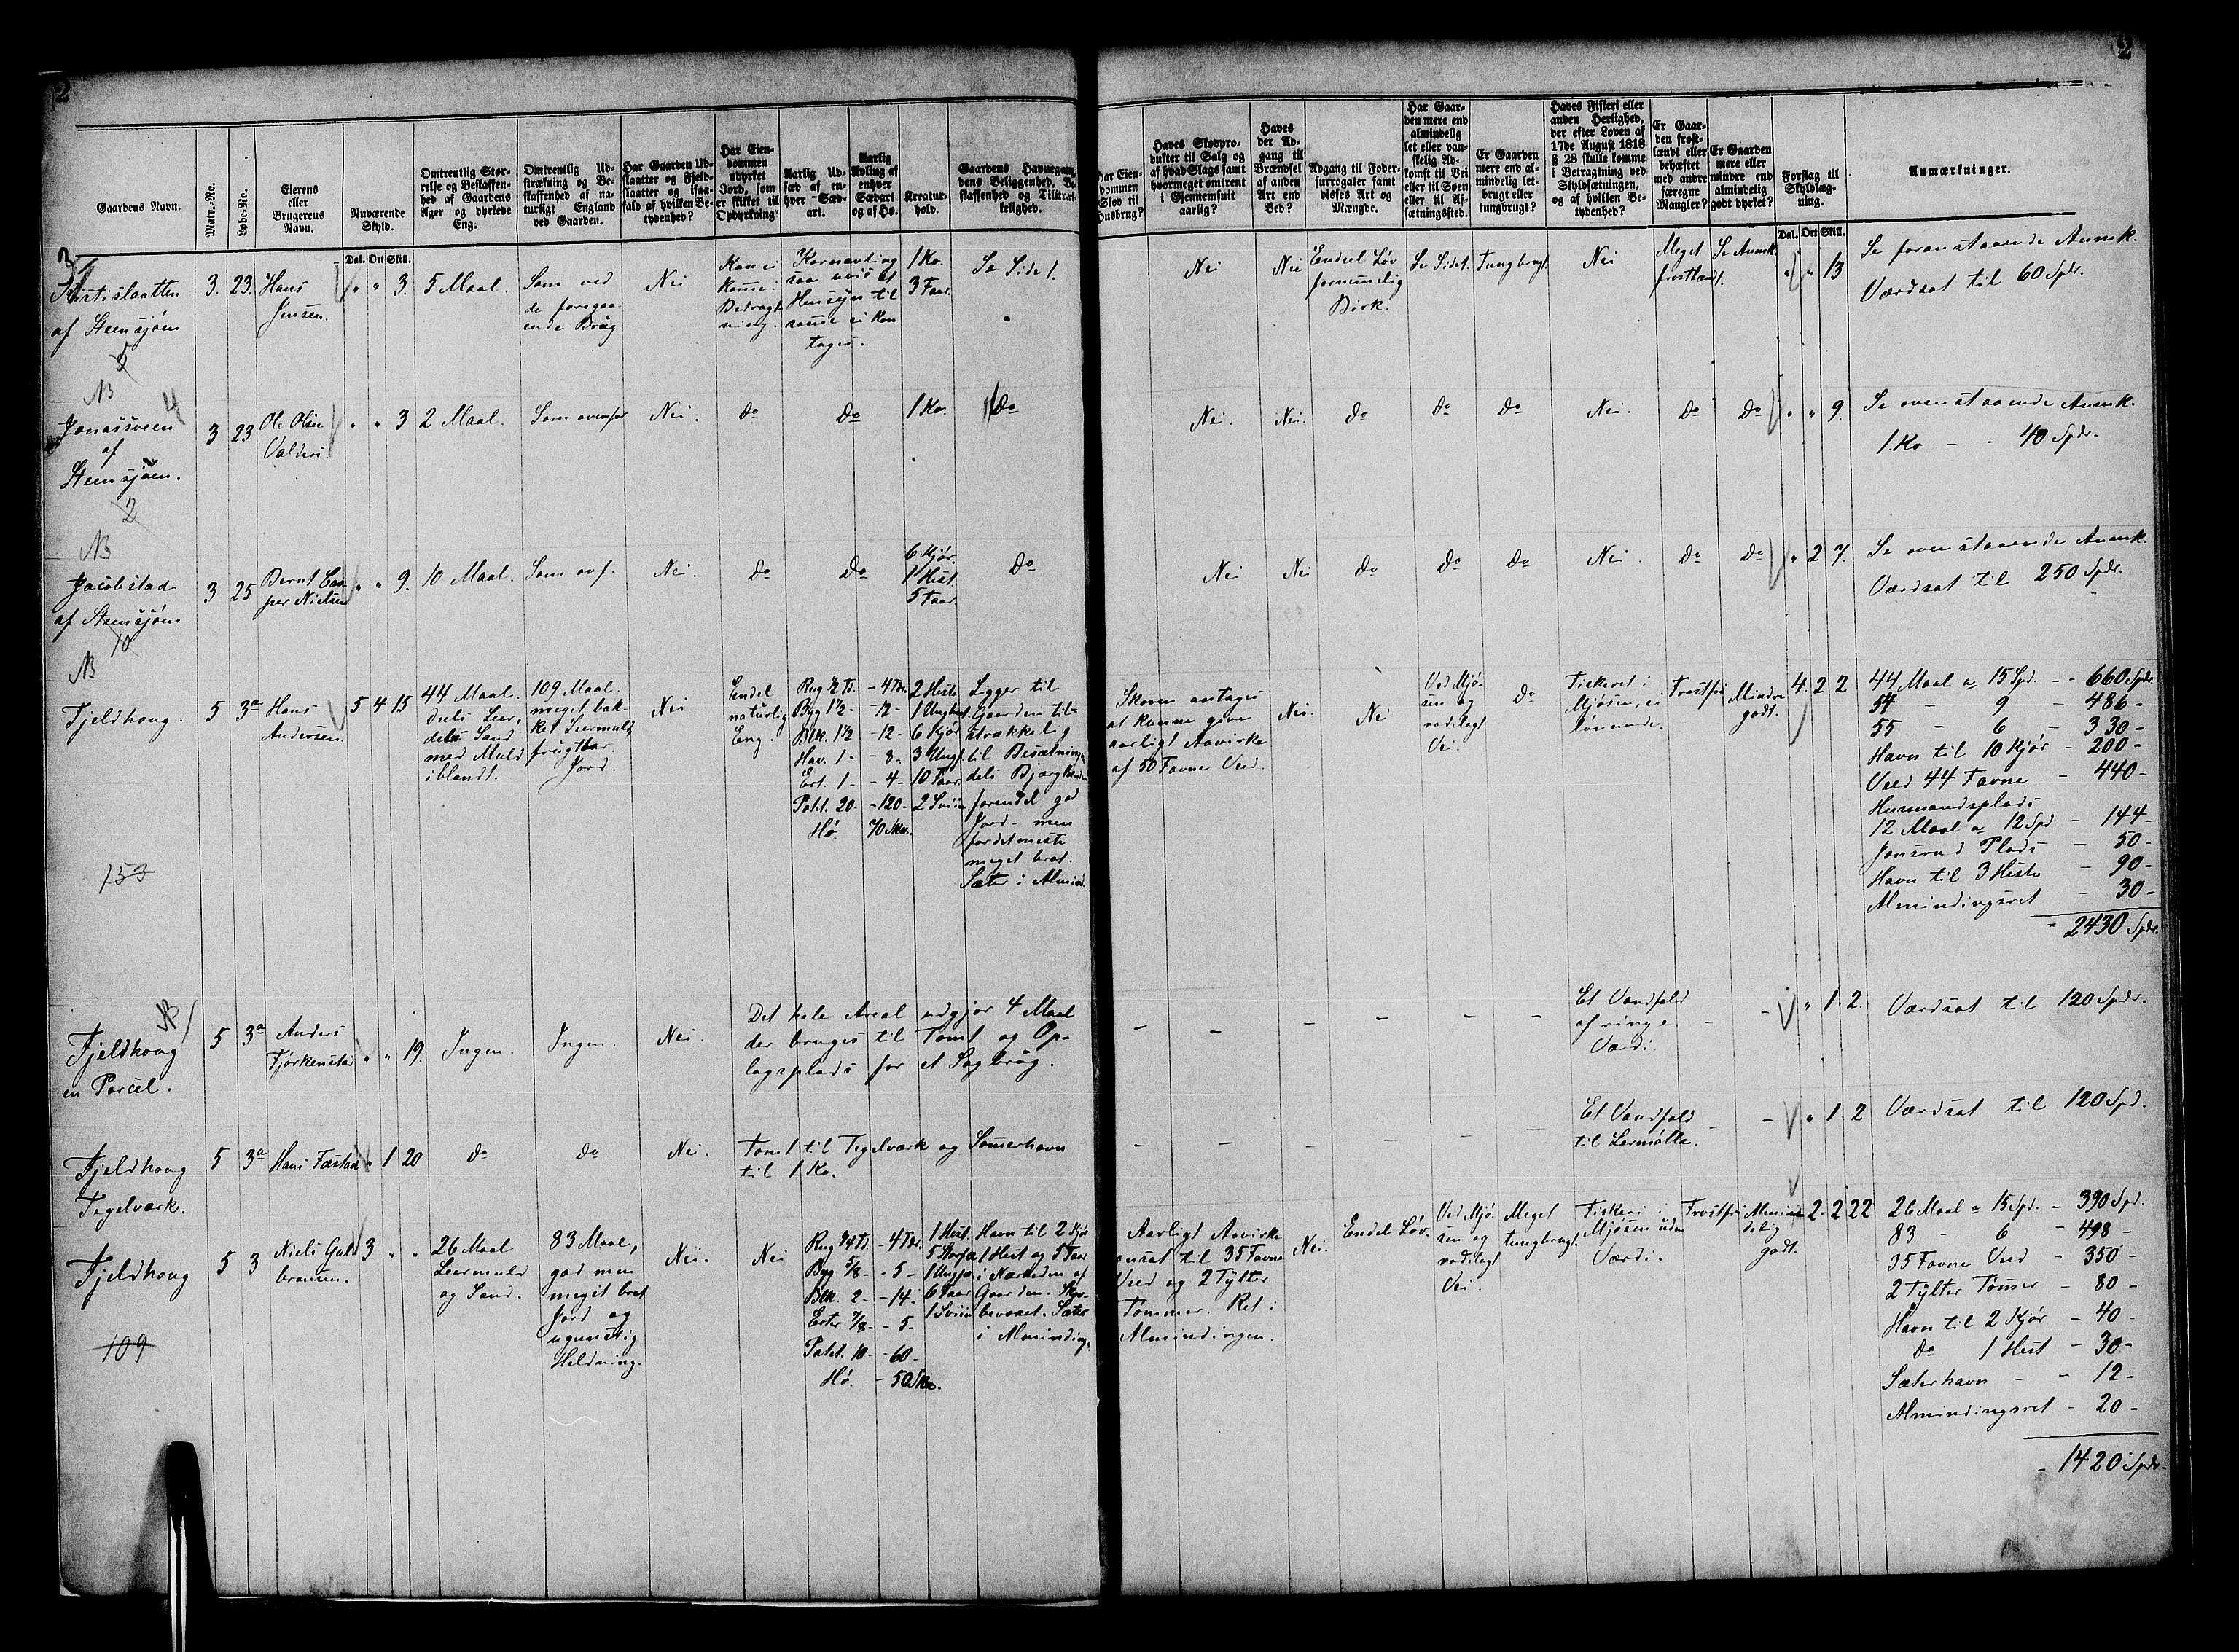 2
2
Gaardens Navn.
Matr.-No.
Løbe-No.
Eierens
eller
Brugerens
Navn.
Nuværende
Skyld.
Dal. Ort Skill.
Omtrentlig Stør-
relse og Beskaffen-
hed af Gaardens
Ager og dyrkede
Eng.
Omtrentlig Ud-
strækning og Be-
skaffenhed af na-
turligt England
ved Gaarden.
Har Gaarden Ud-
slaatter og Fjeld-
slaatter og isaa-
fald af hvilken Be-
tydenhed?
Har Eien-
dommen
udyrket
Jord, som
er skikket til
Opdyrkning?
Aarlig Ud-
sæd af en-
hver Sæd-
art.
Aarlig
Avling af
enhver
Sædart
og af Hø.
Kreatur-
hold.
Gaardens Havnegang,
dens Beliggenhed, Be-
skaffenhed og Tilstræk-
kelighed.
Har Eien-
dommen
Skov til
Husbrug?
Haves Skovpro-
dukter til Salg og
af hvad Slags samt
hvormeget omtrent
i Gjennemsnit
aarlig?
Haves
der Ad-
gang til
Brændsel
af anden
Art end
Ved?
Adgang til Foder-
surrogater samt
disses Art og
Mængde.
Har Gaar-
den mere end
almindelig
let eller van-
skelig Ad-
komst til Vei
eller til Søen
eller til Af-
sætningssted.
Er Gaarden
mere end al-
mindelig let-
brugt eller
tungbrugt?
Haves Fiskeri eller
anden Herlighed,
der efter Loven af
17de August 1818
§ 28 skulle komme
i Betragtning ved
Skyldsætningen,
og af hvilken Be-
tydenhed?
Er Gaar-
den frost-
lændt eller
behæftet
med andre
særegne
Mangler?
Er Gaarden
mere eller
mindre end
almindelig
godt dyrket?
Forslag til
Skyldlæg-
ning.
Dal. Ort Skill.
Anmærkninger.
af Steensjøen
3. 23. Hans
Jensen.
" " 3.
5 Maal.
Som ved
de foregaa-
ende Brug
Nei
Kan ei
komme i
Betragt-
ning.
Kornavling
saa vis at
Hensyn til
samme ei kan
tages.
1 Ko.
3 Faar.
Se Side 1.
Nei
Nei
Endeel Løv
fornemmelig
Birk.
Se Side 1.
Tungbrugt
Nei
Meget
frostlændt.
Se Anmk.
" " 13
Se foranstaaende Anmk.
Værdsat til 60 Spdr.
NB
Jonassveen
af
Steensjøen.
2
3 23
Ole Olsen
Valders.
" " 3
2 Maal.
Som ovenfor
Nei.
Do
Do
1 Ko.
Do
Nei.
Nei.
Do
Do
Do
Nei.
Do
Do
" " 9.
Se ovenstaaende Anmk.
1 Ko - - 40 Spdr.
NB
Jacobstad
af Steensjøen
10
3 25
Bernt Cas-
per Nielsen
" " 9.
10 Maal.
Som ovf.
Nei.
Do
Do
6 Kjør.
1 Hest.
5 Faar.
Do
Nei
Nei
Do
Do
Do
Nei
Do
Do
" 2 7.
Se ovenstaaende Anmk.
Værdsat til 250 Spdr.
NB
Fjeldhoug.
153
5 3a
Hans
Andersen.
5 4 15
44 Maal.
deels Leer,
deels Sand
med Muld
iblandt.
109 Maal.
meget bak-
ket Leermuld
frugtbar
Jord.
Nei
Endel
naturlig
Eng.
Rug 1/2 Td. - 4 Tdr.
Byg 1 1/2 - - 12 -
Blk. 1 1/2 - 12 -
Hav. 1 - - 8 -
Ert. 1 - - 4 -
Potet. 20 - - 120 -
Hø. 70 Skd.
2 Heste
1 Unghest
6 Kjør
3 Ungf.
10 Faar.
2 Sviin.
Ligger til
Gaarden til-
strækkelig
til Besætningen
deels Bjergkender
forendel god
Jord - men
fordetmeste
meget brat.
Sæter i Almind.
Skoven antages
at kunne give
aarligt Aavirke
af 50 Favne Veed.
Nei.
Nei
Ved Mjø-
sen og
rodelagt
Vei.
Do
Fiskeret i
Mjøsen, ei
lønnende.
Frostfri
Mindre
godt.
4 2 2
44 Maal a 15 Spd. - - 660 Spdr.
54 - 9 - 486 -
55 - 6 - 330 -
Havn til 10 Kjør - 200 -
Veed 44 Favne - 440 -
Husmandsplads
12 Maal a 12 Spd - 144 -
Jonsrud Plads - 50 -
Havn til 3 Heste - 90 -
Almindingsret - 30 -
2430 Spdr.
NB
Fjeldhoug
en Parcel.
5 3a
Anders
Fjørkenstad
" " 19.
Ingen.
Ingen.
Nei.
Det hele Areal udgjør 4 Maal
der bruges til Tomt og Op-
lagsplads for et Sagbrug.
- - - - - -
Et Vandfald
af ringe
Værdi.
- -
" 1 2.
Værdsat til 120 Spdr.
Fjeldhoug
Tegelværk.
5 3a
Hans Fæstad
" 1 20
Do
Do
Nei.
Tomt til Tegelværk og Sommerhavn
til 1 Ko.
- - - - - -
Et Vandfald
til Leermølle.
- -
" 1 2
Værdsat til 120 Spd.
Fjeldhoug
109
5 3
Niels Gul-
bransen.
3 " "
26 Maal
Leermuld
og Sand.
83 Maal,
god men
meget brat
Jord og
ugunstig
Heldning.
Nei.
Nei
Rug 1/4 Td. - 4 Tdr.
Byg 5/8 - - 5 -
Blk. 2 - - 14 -
Erter 7/8 - - 5 -
Potet. 10 - - 60 -
Hø. - 50 Skd.
1 Hest
5 Storfæ
1 Ungfæ
6 Faar
1 Sviin
Havn til 2 Kjø
1 Hest og 5 Faar
i Nærheden af
Gaarden. Skov-
bevoxet. Sæter
i Alminding.
Aarligt Aavirke
ansat til 35 Favne
Veed og 2 Tylter
Tømmer. Ret i
Almindingen.
Nei.
Endel Løv.
Ved Mjø-
sen og
rodelagt
Vei.
Meget
tungbrugt.
Fiskeri i
Mjøsen uden
Værdi.
Frostfri
Almin-
delig
godt.
2. 2 22
26 Maal a 15 Spd. - 390 Spd.
83 - 6 - 498 -
35 Favne Veed - 350 -
2 Tylter Tømmer - 80 -
Havn til 2 Kjør - 40 -
Do 1 Hest - 30 -
Sæterhavn - - 12 -
Almindingsret - 20 -
- 1420 Spdr.